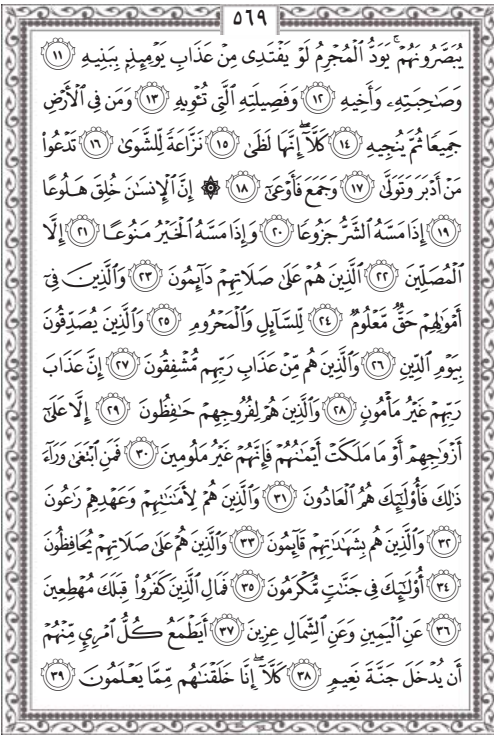 ٥٦٩
يُبَصَّرُونَهُمْ ۚ يَوَدُّ ٱلْمُجْرِمُ لَوْ يَفْتَدِى مِنْ عَذَابِ يَوْمِئِذٍۭ بِبَنِيهِ ١١
وَصَٰحِبَتِهِۦ وَأَخِيهِ ١٢ وَفَصِيلَتِهِ ٱلَّتِى تُـْٔوِيهِ ١٣ وَمَن فِى ٱلْأَرْضِ
جَمِيعًا ثُمَّ يُنجِيهِ ١٤ كَلَّآ ۖ إِنَّهَا لَظَىٰ ١٥ نَزَّاعَةً لِّلشَّوَىٰ ١٦ تَدْعُوا۟
مَنْ أَدْبَرَ وَتَوَلَّىٰ ١٧ وَجَمَعَ فَأَوْعَىٰٓ ١٨ ۞ إِنَّ ٱلْإِنسَٰنَ خُلِقَ هَلُوعًا
١٩ إِذَا مَسَّهُ ٱلشَّرُّ جَزُوعًا ٢٠ وَإِذَا مَسَّهُ ٱلْخَيْرُ مَنُوعًا ٢١ إِلَّا
ٱلْمُصَلِّينَ ٢٢ ٱلَّذِينَ هُمْ عَلَىٰ صَلَاتِهِمْ دَآئِمُونَ ٢٣ وَٱلَّذِينَ فِىٓ
أَمْوَٰلِهِمْ حَقٌّ مَّعْلُومٌ ٢٤ لِّلسَّآئِلِ وَٱلْمَحْرُومِ ٢٥ وَٱلَّذِينَ يُصَدِّقُونَ
بِيَوْمِ ٱلدِّينِ ٢٦ وَٱلَّذِينَ هُم مِّنْ عَذَابِ رَبِّهِم مُّشْفِقُونَ ٢٧ إِنَّ عَذَابَ
رَبِّهِمْ غَيْرُ مَأْمُونٍ ٢٨ وَٱلَّذِينَ هُمْ لِفُرُوجِهِمْ حَٰفِظُونَ ٢٩ إِلَّا عَلَىٰٓ
أَزْوَٰجِهِمْ أَوْ مَا مَلَكَتْ أَيْمَٰنُهُمْ فَإِنَّهُمْ غَيْرُ مَلُومِينَ ٣٠ فَمَنِ ٱبْتَغَىٰ وَرَآءَ
ذَٰلِكَ فَأُو۟لَٰٓئِكَ هُمُ ٱلْعَادُونَ ٣١ وَٱلَّذِينَ هُمْ لِأَمَٰنَٰتِهِمْ وَعَهْدِهِمْ رَٰعُونَ
٣٢ وَٱلَّذِينَ هُم بِشَهَٰدَٰتِهِمْ قَآئِمُونَ ٣٣ وَٱلَّذِينَ هُمْ عَلَىٰ صَلَاتِهِمْ يُحَافِظُونَ
٣٤ أُو۟لَٰٓئِكَ فِى جَنَّٰتٍ مُّكْرَمُونَ ٣٥ فَمَالِ ٱلَّذِينَ كَفَرُوا۟ قِبَلَكَ مُهْطِعِينَ
٣٦ عَنِ ٱلْيَمِينِ وَعَنِ ٱلشِّمَالِ عِزِينَ ٣٧ أَيَطْمَعُ كُلُّ ٱمْرِئٍ مِّنْهُمْ
أَن يُدْخَلَ جَنَّةَ نَعِيمٍ ٣٨ كَلَّآ ۖ إِنَّا خَلَقْنَٰهُم مِّمَّا يَعْلَمُونَ ٣٩